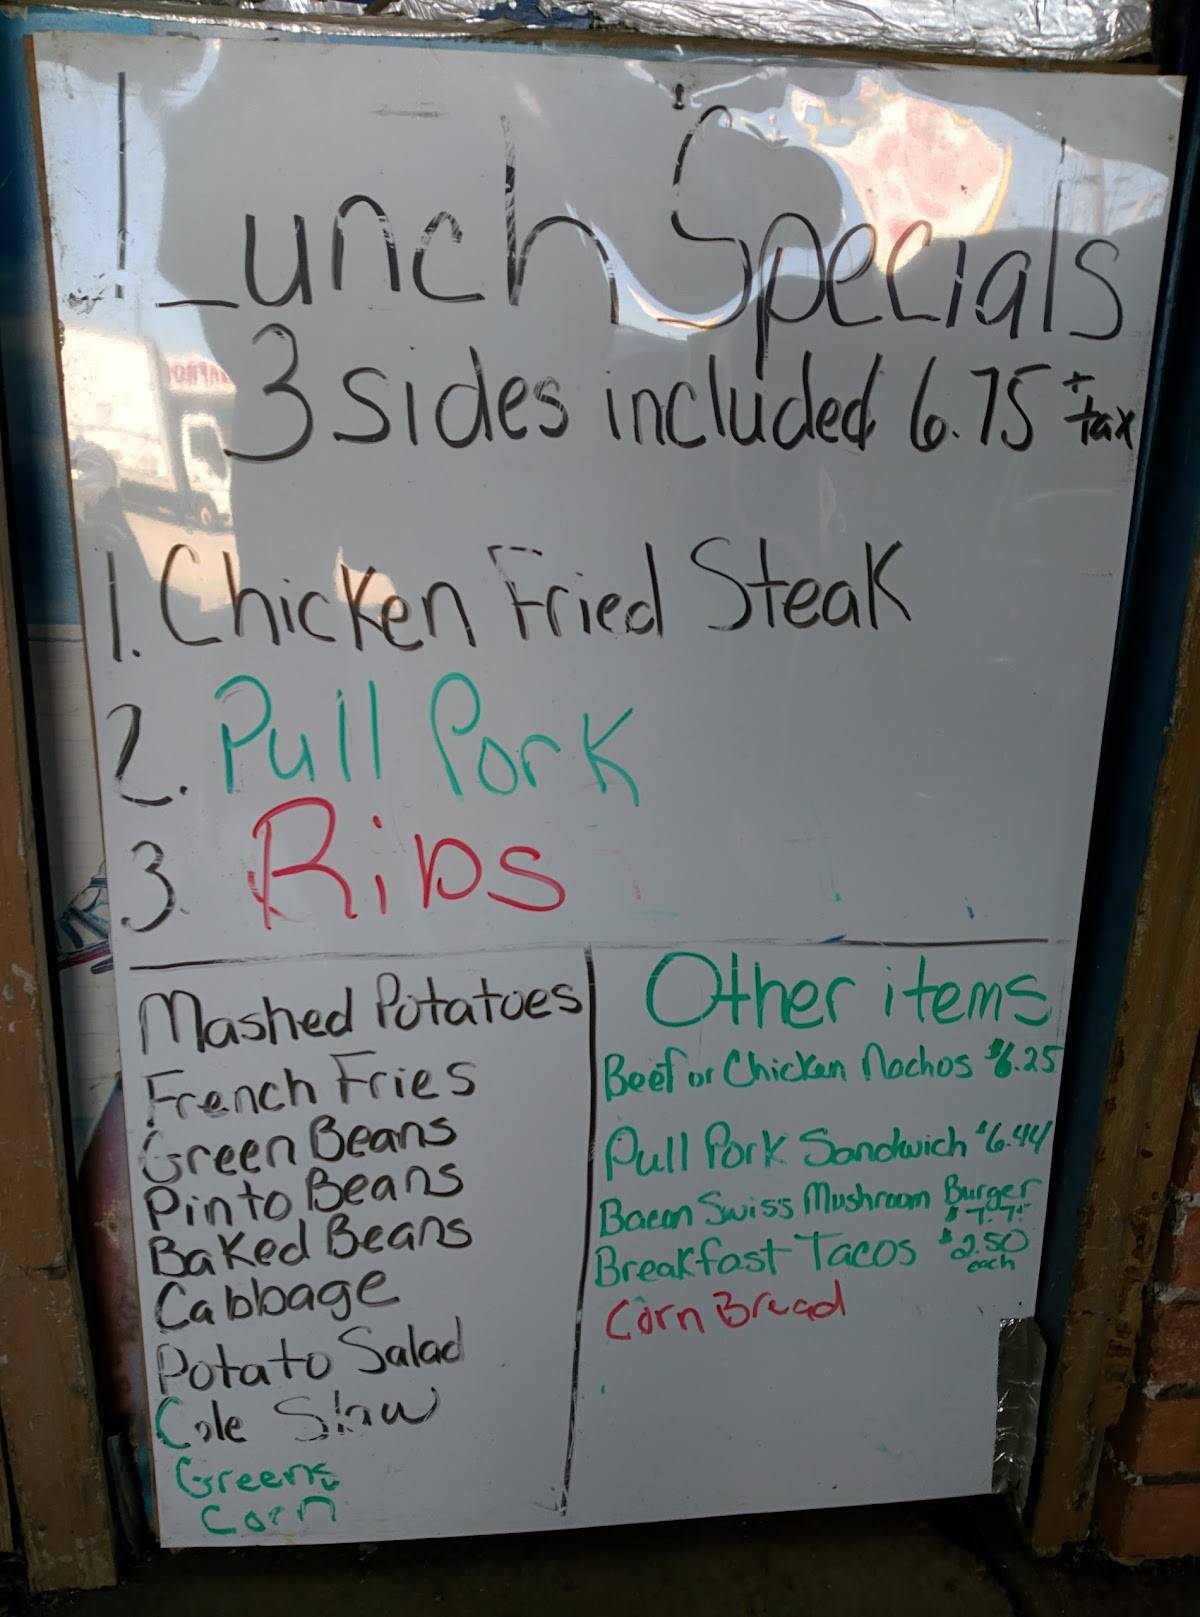 Lunch Specials
3 sides included 6.75 + tax
1. Chicken Fried Steak
2. Pull Pork
3. Ribs
Mashed Potatoes
French Fries
Green Beans
Pinto Beans
Baked Beans
Cabbage
Potato Salad
Cole Slaw
Greens
Corn
Other items
Beef or Chicken Nachos $6.25
Pull Pork Sandwich $6.44
Bacon Swiss Mushroom Burger
$7.75
Breakfast Tacos $2.50
each
Corn Bread